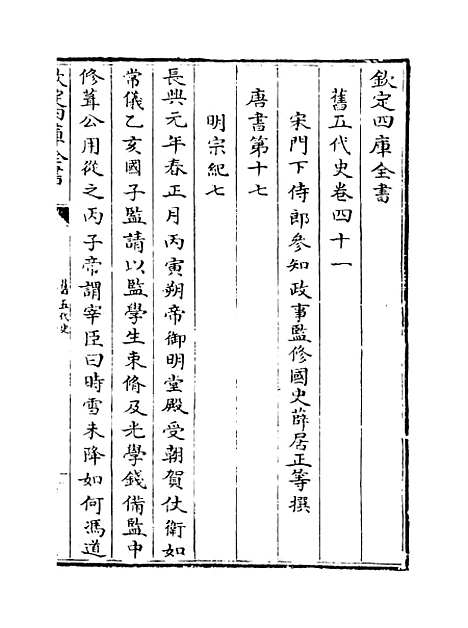 欽定四庫全書
舊五代史卷四十一
宋門下侍郎參知政事監修國史薛居正等撰
唐書第十七
明宗紀七
長興元年春正月丙寅朔帝御明堂殿受朝賀仗衛如
常儀乙亥國子監請以監學生束脩及光學錢備監中
修葺公用從之丙子帝謂宰臣曰時雪未降如何馮道
欽定四庫全書
舊五代史
一